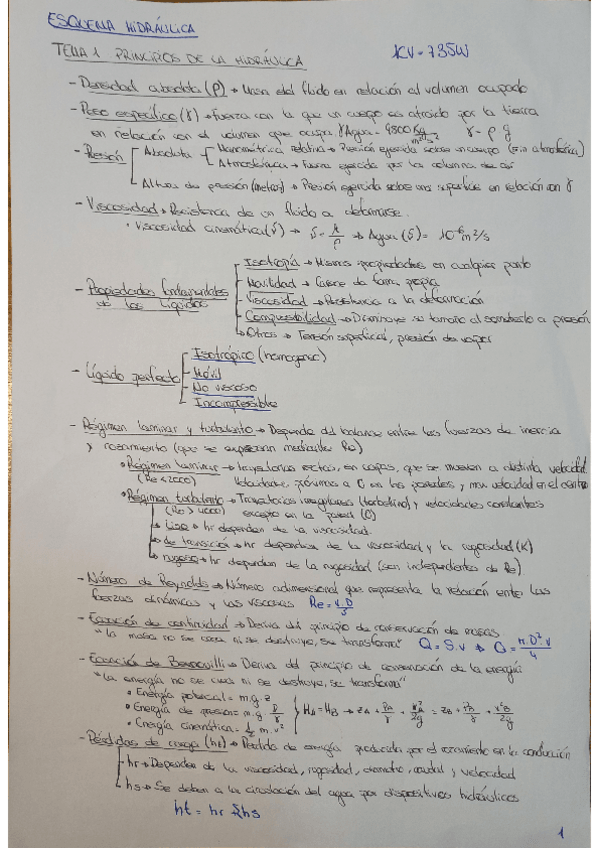 ESQUEMA HIDRÁULICA
TEMA 1 PRINCIPIOS DE LA HIDRÁULICA 1CV = 735W
- Densidad absoluta (ρ) → Masa del fluido en relación al volumen ocupado
- Peso específico (γ) → Fuerza con la que un cuerpo es atraido por la tierra
en relación con el volumen que ocupa γAgua = 9800 Kg/m²s² γ = ρ g
- Presión Absoluta Manométrica relativa → Presión ejercida sobre un cuerpo (sin atmosférica)
Atmosférica → Fuerza ejercida por la columna de
Altura de presión (metros) → Presión ejercida sobre una superficie en relación con γ
- Viscosidad → Resistencia de un fluido a deformarse.
• Viscosidad cinemática → Agua = 10⁻⁶ m²/s
- Propiedades fundamentales de los líquidos
Isotropía → Mismas propiedades en cualquier punto
Movilidad → Carece de forma propia
Viscosidad → Resistencia a la deformación
Compresibilidad → Disminuye su tamaño al someterlo a presión
Otros → Tensión superficial, presión de vapor
- Líquido perfecto
Isotrópico (homogeneo)
Móvil
No viscoso
Incompresible
- Régimen laminar y turbulento → Depende del balance entre las fuerzas de inercia
y rozamiento (que se expresan mediante Re)
• Régimen laminar → trayectorias rectas, en capas, que se mueven a distinta velocidad
(Re < 2000) Velocidades próximas a 0 en las paredes, y max velocidad en el centro
• Régimen turbulento → Trayectorias irregulares (torbellino) y velocidades constantes
(Re > 4000) excepto en la pared (0)
↳ Liso → hr dependen de la viscosidad.
↳ de transición → hr dependen de la viscosidad y la rugosidad (K)
↳ rugoso → hr dependen de la rugosidad (son independientes de Re)
- Número de Reynolds → Número adimensional que representa la relación entre las
fuerzas dinámicas y las viscosas Re = v.D/
- Ecuación de continuidad → Deriva del principio de conservación de masas
"la masa no se crea ni se destruye, se transforma" Q = S.v → Q = π.D².v/4
- Ecuación de Bernouilli → Deriva del principio de conservación de la energía
"la energía no se crea ni se destruye, se transforma"
• Energía potencial = m.g.z
• Energía de presión = m.g P/γ HA = HB → zA + PA/γ + v²A/2g = zB + PB/γ + v²B/2g
• Energía cinemática = ½ m.v²
- Pérdidas de carga (ht) → Pérdida de energía producida por el rozamiento en la conducción
hr → Dependen de la viscosidad, rugosidad, diametro, caudal y velocidad
hs → Se deben a la circulación del agua por dispositivos hidráulicos
ht = hr Σhs
1